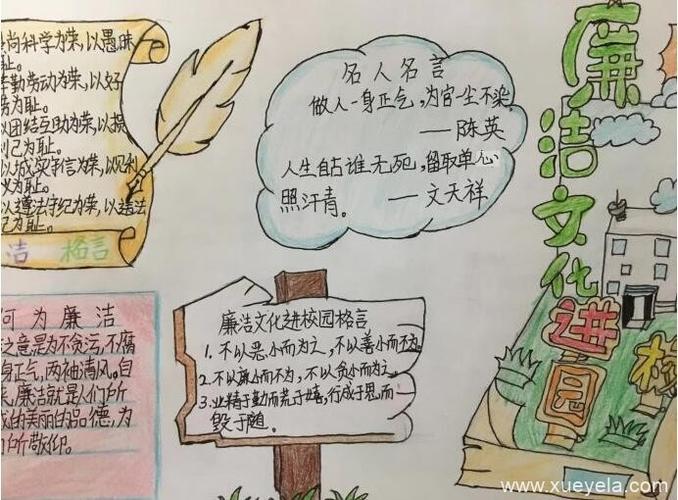 尚科学为荣,以愚昧
耻。
勤劳动为荣,以好
劳为耻。
以团结互助为荣,以损
利己为耻。
以诚实守信为荣,以见利
义为耻。
以遵法守纪为荣,以违法
纪为耻。
洁 格言
名人名言
做人一身正气,为官一尘不染
——陈英
人生自古谁无死,留取单心
照汗青。 ——文天祥
廉洁文化进校园
何为廉洁
之意是为不贪污,不腐
身正气,两袖清风。自
来,廉洁就是人们所
成的美丽的品德,为
们所敬仰。
廉洁文化进校园格言
1.不以恶小而为之,不以善小而不为。
2.不以廉小而不为,不以贪小而为之。
3.业精于勤而荒于嬉,行成于思而
毁于随。
www.xueyela.com